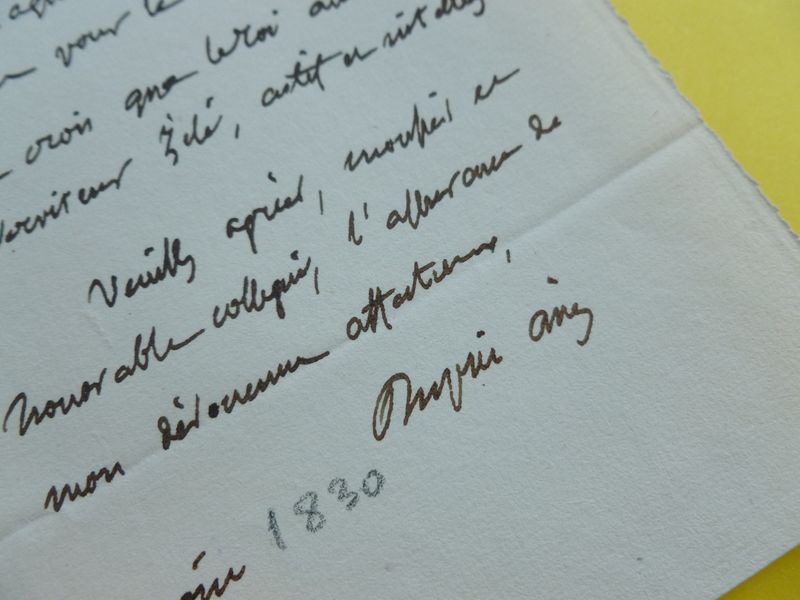 vous le
crois que le Roi au
serviteur zélé, actif et
Veuillez agréer, monsieur et
honorable collègue, l'assurance de
mon dévouement affectueux,
Dupin aîné
1830